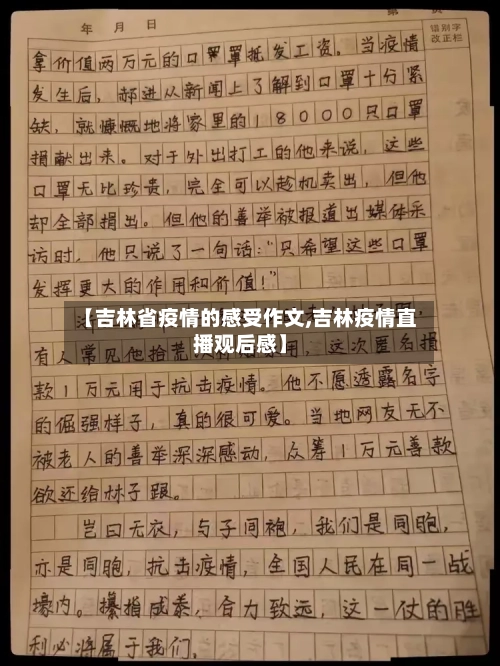 年 月 日
错别字
改正栏
拿价值两万元的口罩抵发工资。当疫情
发生后，郝进从新闻上了解到口罩十分紧
缺，就慷慨地将家里的18000只口罩
捐献出来。对于外出打工的他来说，这些
口罩无比珍贵，完全可以趁机卖出，但他
却全部捐出。但他的善举被报道出媒体采
访时，他只说了一句话：“只希望这些口罩
发挥更大的作用和价值！”
【吉林省疫情的感受作文,吉林疫情直
播观后感】
有人常见他拾荒
这次匿名捐
款1万元用于抗击疫情。他不愿透露名字
的倔强样子，真的很可爱。当地网友无不
被老人的善举深深感动，众筹1万元善款
欲还给林子跟。
岂曰无衣，与子同袍，我们是同胞，
亦是同胞，抗击疫情，全国人民在同一战
壕内。攥指成拳，合力致远，这一仗的胜
利必将属于我们。